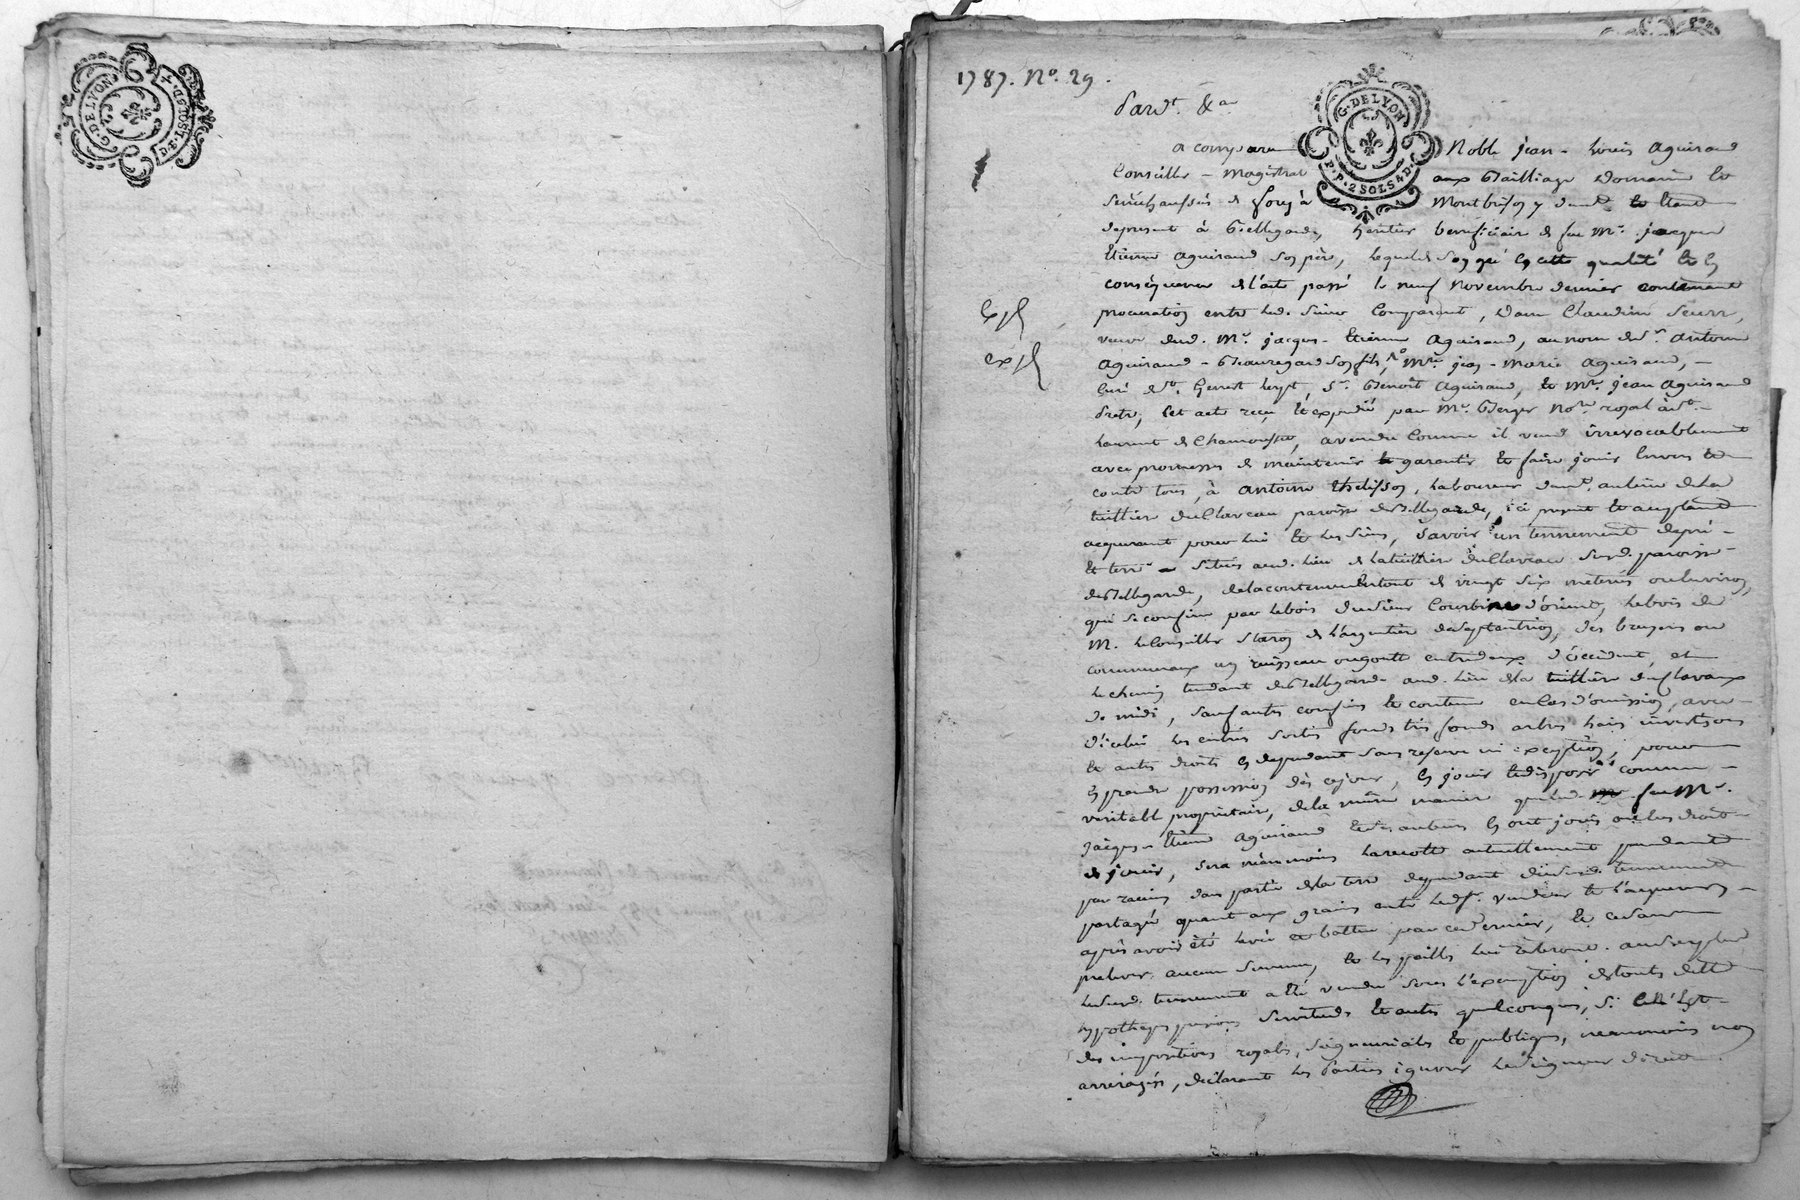 G. DE LYON
1787. No. 29.
Pardt. &a
G. DE LYON
P. P. 2 SOLS 4 D.
a comparu Noble jean-Louis Aguiraud
Conseiller-magistrat aux Bailliage Domaine et
Sénéchaussée de forez à Montbrison y demt
depresent à Bellegarde, heritier beneficiaire de feu Me. jacques
Etienne Aguiraud son père, lequel de son gré en cette qualité et en
conséquence de l'acte passé le neuf Novembre dernier contenant
procuration entre led. Sieur Comparant, Dame Claudine
veuve dud. Me. jacques-Etienne Aguiraud, au nom de Sr. Antoine
Aguiraud-Beauregard son fils, Mre. jean-Marie Aguiraud,
Curé de St. Sr. Benoît Aguiraud, et Mre. jean Aguiraud
Pretre, cet acte reçu et expedié par Me. Berger Nore. royal à St.
Laurent de Chamousset, a vendu comme il vend irrevocablement
avec promesses de maintenir garantir et faire jouir envers et
contre tous, à Antoine Thelisson, laboureur demt. au lieu de la
tuillier du Claveau paroisse de Bellegarde, ici present et acceptant
acquerant pour lui et les siens, savoir un tennement de pré
et terre situés aud. lieu de la tuillière du Claveau susd. paroisse
de Bellegarde, de la contenue en tout de vingt six meterées ou environ,
qui se confine par le bois du sieur d'orient, le bois de
M. le Conseiller Staron de l'argentier de septentrion, des bruyeres ou
communaux un ruisseau ou goutte entredeux d'occident, et
le chemin tendant de Bellegarde aud. lieu de la tuillière du Clavaux
de midi, sauf autres confins et contenu en cas d'omission, avec
d'icelui les entrées sorties fonds tres fonds arbres haies
et autres droits en dependant sans reserve ni exception, pour
en prendre possession dès cejour, en jouir et disposer comme
veritable proprietaire, de la même manière que led. feu Me.
jacques-Etienne Aguiraud et ses auteurs en ont jouis ou eu droit
de jouir, sera néanmoins la recolte actuellement pendante
par racines dans partie de la terre dependant dud. tennement
partagée quant aux grains entre led. Sr. vendeur et l'acquereur
après avoir été levée et battue par ce dernier,
prelever aucune semence, et les pailles lui
led. tennement a été vendu sous l'exemption de toutes dettes
hypotheques pensions servitudes et autres quelconques, si ce n'est
des impositions royales, seigneuriales et publiques, neanmoins non
arreragées, déclarant les Parties ignorer le seigneur direct.